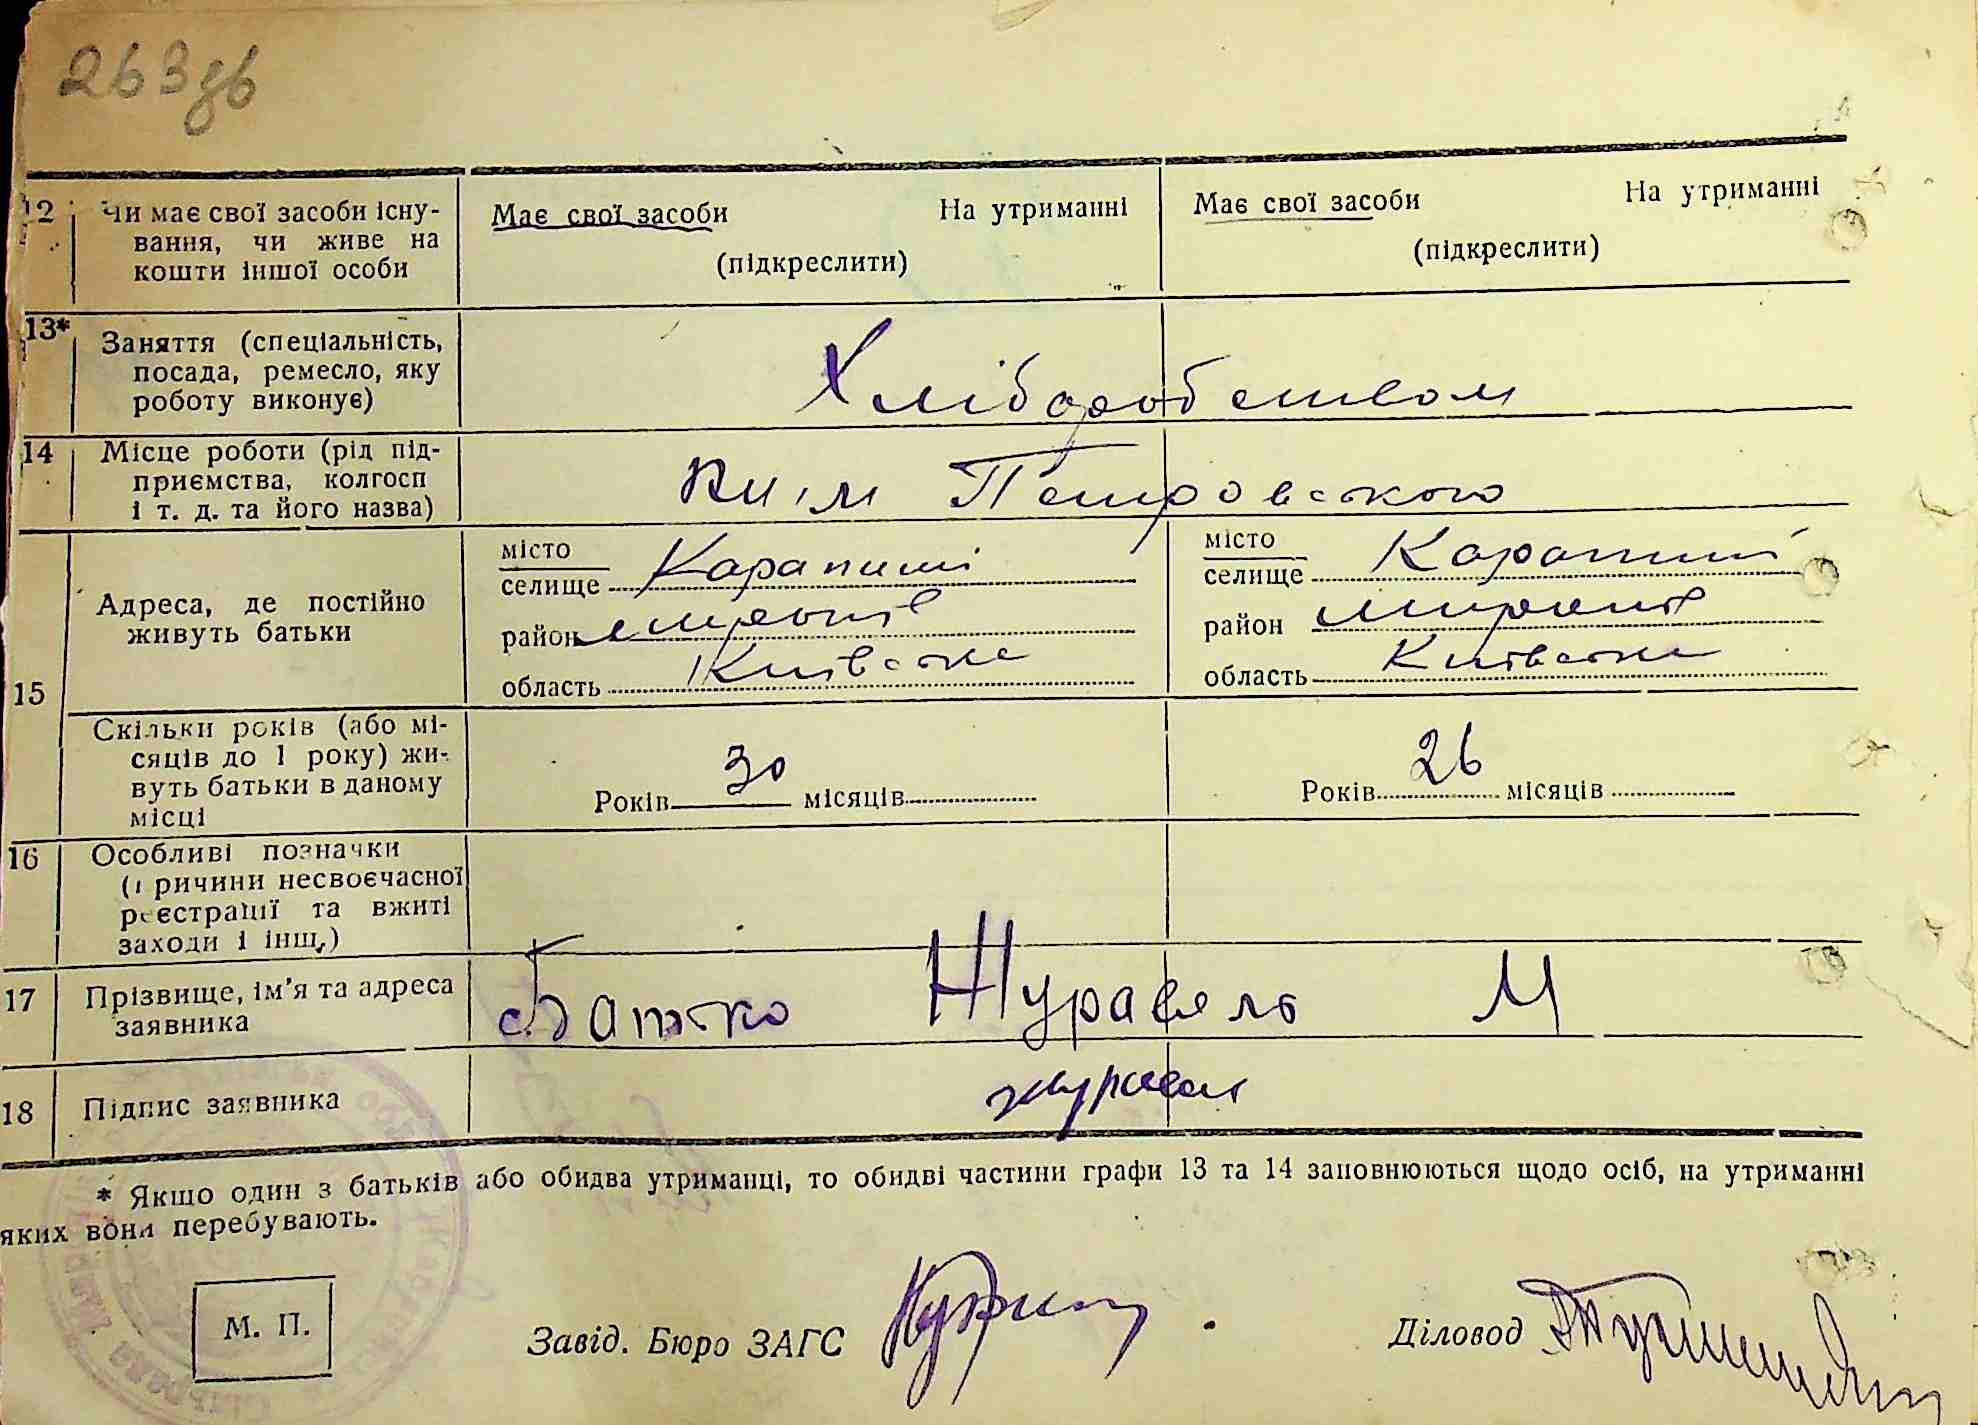 263зв
12 Чи має свої засоби існу- Має свої засоби На утриманні Має свої засоби На утриманні
вання, чи живе на
кошти іншої особи (підкреслити) (підкреслити)
13* Заняття (спеціальність,
посада, ремесло, яку
роботу виконує) Хліборобством
14 Місце роботи (рід під-
приємства, колгосп
і т. д. та його назва) ім Петровського
15 Адреса, де постійно
живуть батьки
місто місто
селище Карапиші селище Карапиші
район район
область Київська область Київська
Скільки років (або мі-
сяців до 1 року) жи-
вуть батьки в даному
місці
Років 30 місяців Років 26 місяців
16 Особливі позначки
(причини несвоєчасної
реєстрації та вжиті
заходи і інш,)
17 Прізвище, ім'я та адреса
заявника Батько Журавель М
18 Підпис заявника Журавел
* Якщо один з батьків або обидва утриманці, то обидві частини графи 13 та 14 заповнюються щодо осіб, на утриманні
яких вони перебувають.
М. П. Завід. Бюро ЗАГС Діловод